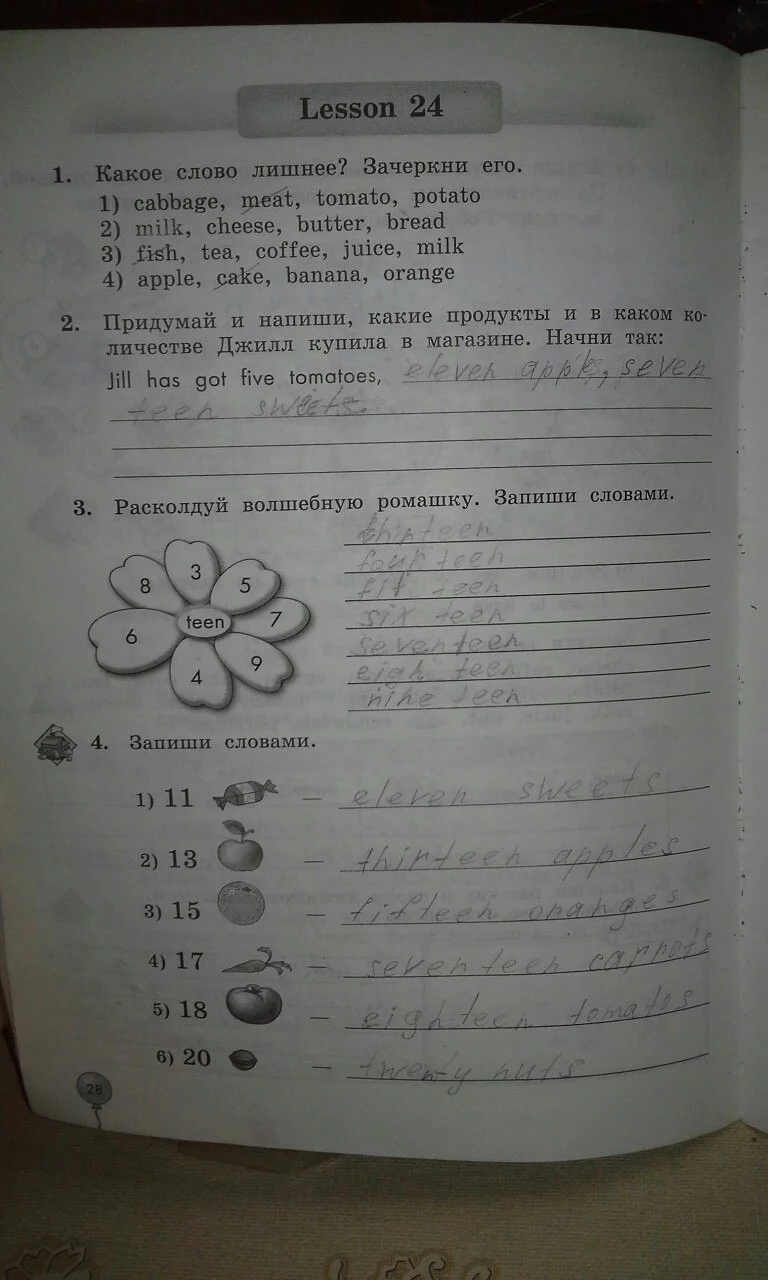 Lesson 24
1. Какое слово лишнее? Зачеркни его.
1) cabbage, meat, tomato, potato
2) milk, cheese, butter, bread
3) fish, tea, coffee, juice, milk
4) apple, cake, banana, orange
2. Придумай и напиши, какие продукты и в каком ко-
личестве Джилл купила в магазине. Начни так:
Jill has got five tomatoes, eleven apples, seven
teen sweets.
3. Расколдуй волшебную ромашку. Запиши словами.
3
8
5
7
teen
6
9
4
thirteen
four teen
fif teen
six teen
seventeen
eigh teen
nine teen
4. Запиши словами.
1) 11 – eleven sweets
2) 13 – thirteen apples
3) 15 – fifteen oranges
4) 17 – seventeen carrots
5) 18 – eighteen tomatos
6) 20 – twenty nuts
28